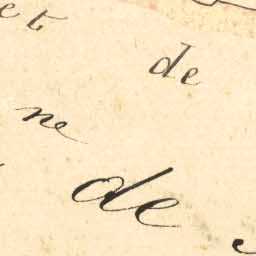 et de
ne
de